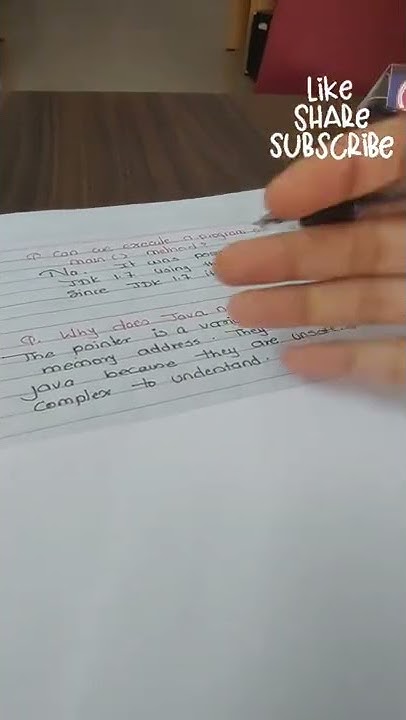 Like
SHARE
SUBSCRIBE
Q. Can we execute a program
main() method?
No. It was
JDK 1.7 using
Since JDK 1.7
Q. Why does Java
The pointer is a
memory address. They
Java because they are
complex to understand.